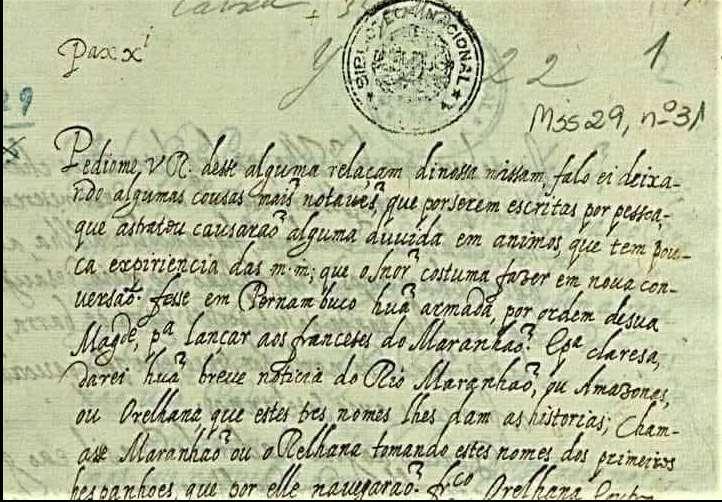 Pax xi
BIBLIOTECA NACIONAL
22
1
Mss 29, nº 31
29
Pediome, V R. desse alguma relaçam dinossa missam, falo ei deixa-
ndo algumas cousas mais notaveis, que porserem escritas por pessoa,
que astratou causarão alguma duvida em animos, que tem pou-
ca expiriencia das m.m; que o Snor costuma fazer em nova con-
versaõ. fesse em Pernambuco huã armada, por ordem desua
Magde, pa lançar aos franceses do Maranhaõ. Epa claresa,
darei huã breve noticia do Rio Maranhaõ, ou Amazonas,
ou Orelhana, que estes tres nomes lhes dam as historias; Cham-
asse Maranhaõ ou o Relhana tomando estes nomes dos primeiros
hespanhoes, que por elle navegaraõ. frco Orelhana